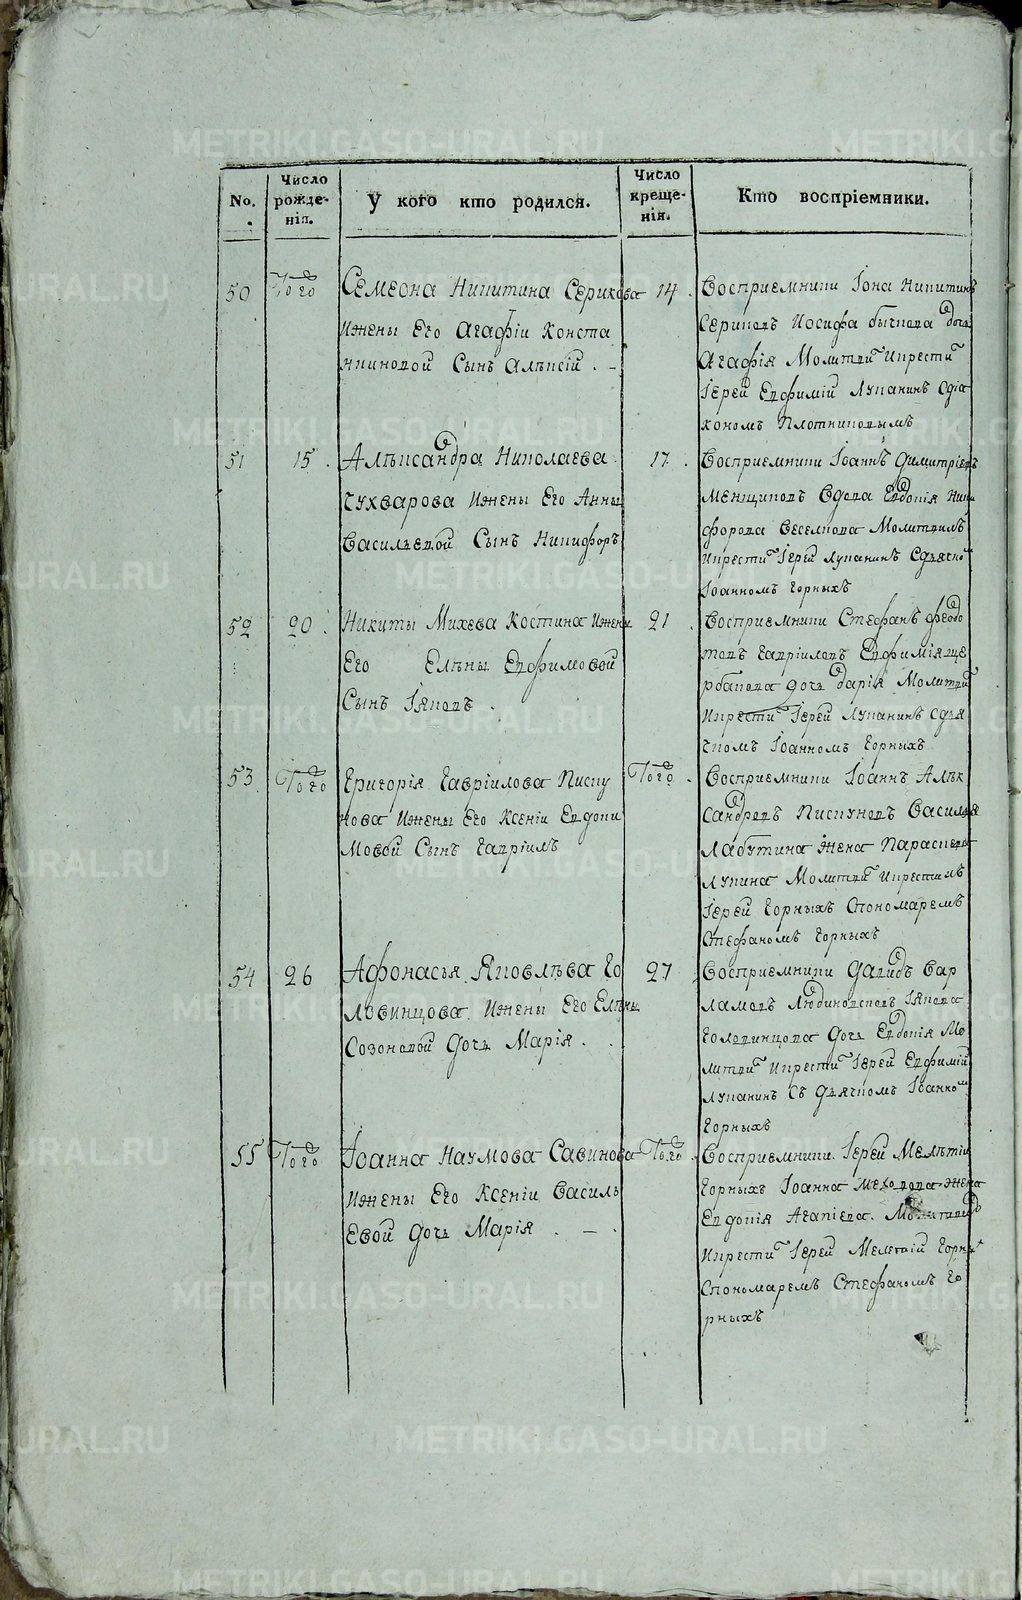 No.
Число рожденія.
У кого кто родился.
Число крещенія.
Кто воспріемники.
50
Того
Семеона Никитина Серикова
Ижены Его Агафіи Конста
нтиновой Сынъ Алѣксій . –
14 .
Восприемники Іона Никитинъ
Сериковъ Иосифа быкова дочь
Агафія Молитви Икрести
Іерей Евфимій Лупанинъ Сдіа
кономъ Плотниковымъ
51
15 .
Алѣксандра Николаева
Чухварова Ижены Его Анны
Васильевой Сынъ Никифоръ
17 .
Восприемники Іоаннъ Димитріевъ
Менщиковъ Вдова Евдокія Ники
форова Веселкова Молитвилъ
Икрести Іерей Лупанинъ Сдьячко
Іоанномъ Горныхъ
52
20 .
Никиты Михева Костина Ижены
Его Елѣны Евфимовой
Сынъ Іяковъ .
21 .
Восприемники Стефанъ Федо
товъ Гавріловъ Евфимія ще
рбакова дочь Дарія Молитви
Икрести Іерей Лупанинъ Сдья
чкомъ Іоанномъ Горныхъ
53
Того
Григорія Гавріилова Писку
нова Ижены Его Ксеніи Евдоки
мовой Сынъ Гавріилъ
Того .
Восприемники Іоаннъ Алѣк
сандровъ Пискуновъ Василья
Лабутина Жена Параскева
Лукина Молитви Икрестилъ
Іерей Горныхъ Спономаремъ
Стефаномъ Горныхъ
54
26
Афонасья Яковлѣва Го
ловинцова Ижены Его Елѣны
Созоновой Дочь Марія . .
27
Восприемники Давидъ Вар
ламовъ Людиновсковъ Іякова
Головинцова Дочь Евдокія Мо
литви Икрести Іерей Евфимій
Лупанинъ Съ Дьячкомъ Іоанном
Горныхъ
55
Того
Іоанна Наумова Савинова
Ижены Его Ксеніи Василь
Евой Дочь Марія . – .
Того .
Восприемники Іерей Мелѣтій
Горныхъ Іоанна Жена
Евдокія Агапіева. Молитвилъ
Икрести Іерей Мелетій Горных
Спономаремъ Стефаномъ Го
рныхъ